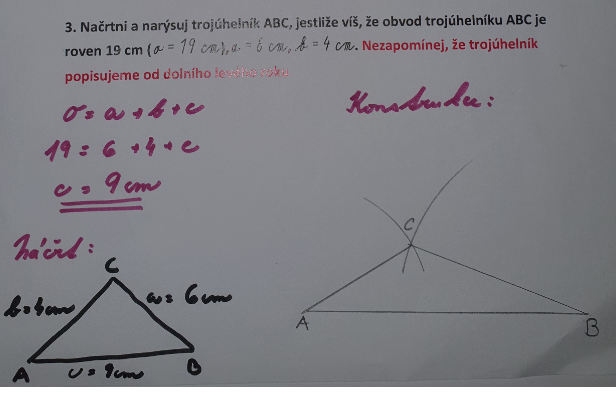 3. Načrtni a narýsuj trojúhelník ABC, jestliže víš, že obvod trojúhelníku ABC je
roven 19 cm (o = 19 cm), a = 6 cm, b = 4 cm. Nezapomínej, že trojúhelník
popisujeme od dolního levého rohu
o = a + b + c
19 = 6 + 4 + c
c = 9 cm
Konstrukce:
Náčrt:
C
b = 4 cm
a = 6 cm
A
c = 9 cm
B
C
A
B